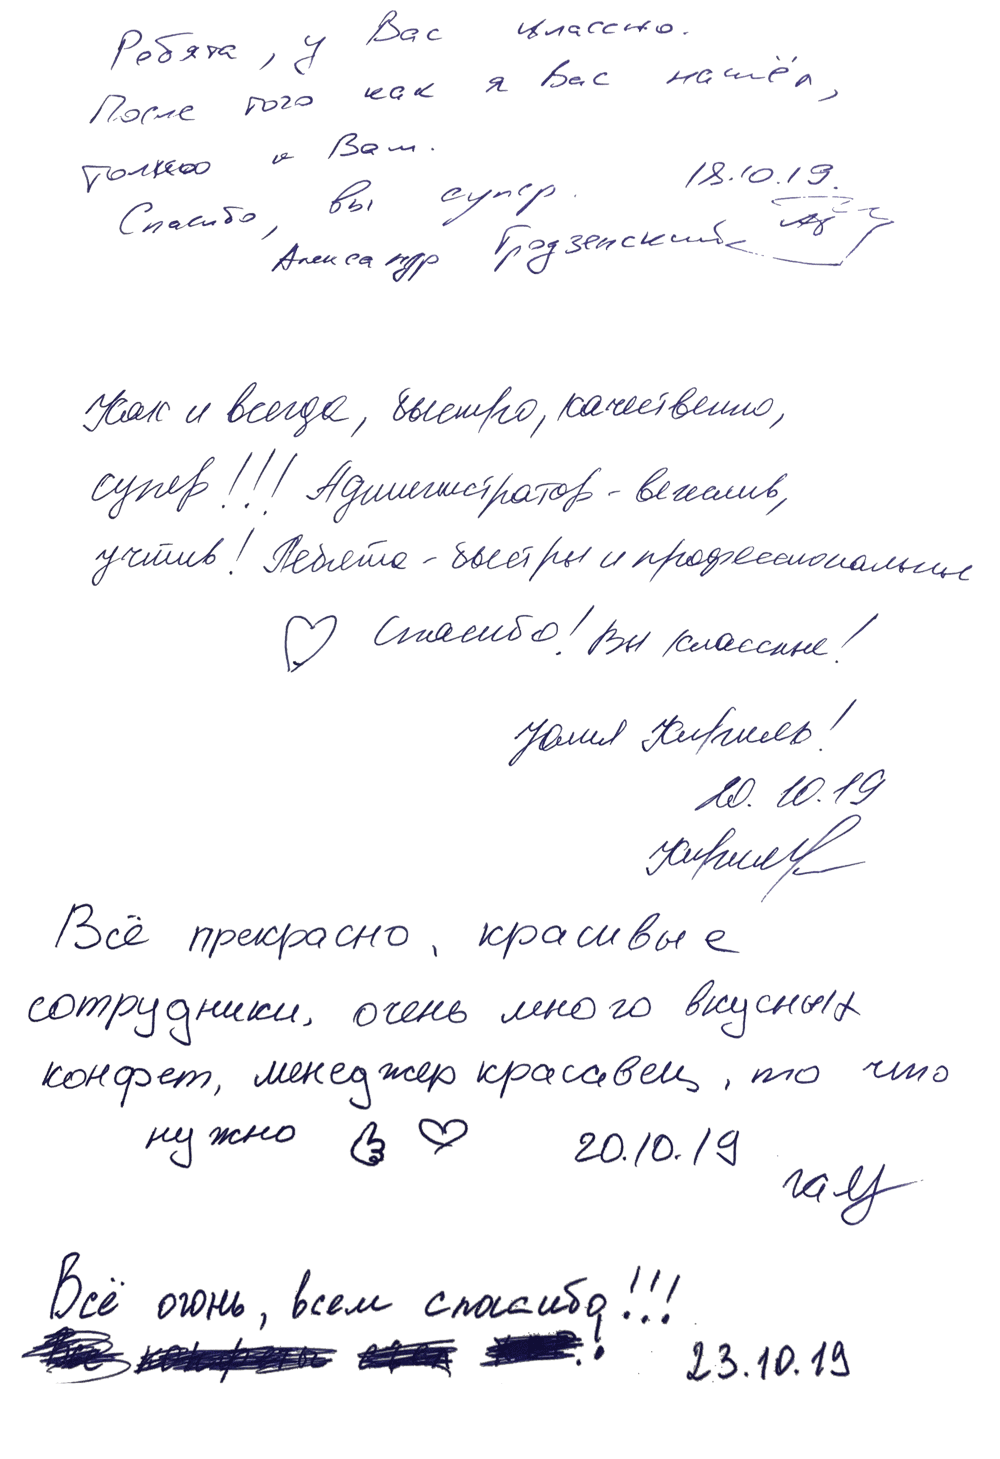 Ребята, у Вас классно.
После того как я Вас нашёл,
только к Вам.
Спасибо, вы супер. 18.10.19.
Александр Гродзенский
Как и всегда, быстро, качественно,
супер!!! Администратор - вежлив,
учтив! Ребята - быстры и профессиональны
Спасибо! Вы классные!
Юлия!
20.10.19
Всё прекрасно, красивые
сотрудники, очень много вкусных
конфет, менеджер красавец, то что
нужно 20.10.19
Всё огонь, всем спасибо!!!
23.10.19